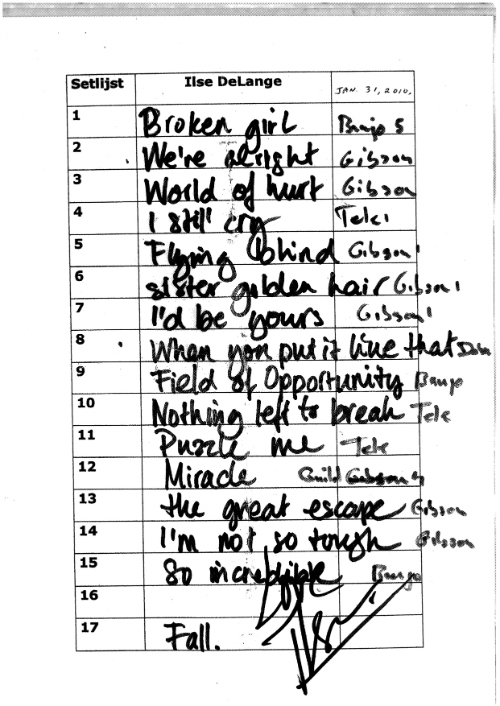 Setlijst Ilse DeLange JAN. 31, 2010.
1 Broken girl Banjo 5
2 We're alright Gibson
3 World of hurt Gibson
4 I still cry Tele 1
5 Flying blind Gibson 1
6 sister golden hair Gibson 1
7 I'd be yours Gibson 1
8 When you put it like that
9 Field of Opportunity Banjo
10 Nothing left to break Tele
11 Puzzle me Tele
12 Miracle Guild Gibson
13 the great escape Gibson
14 I'm not so tough Gibson
15 So incredible Banjo
16
17 Fall.